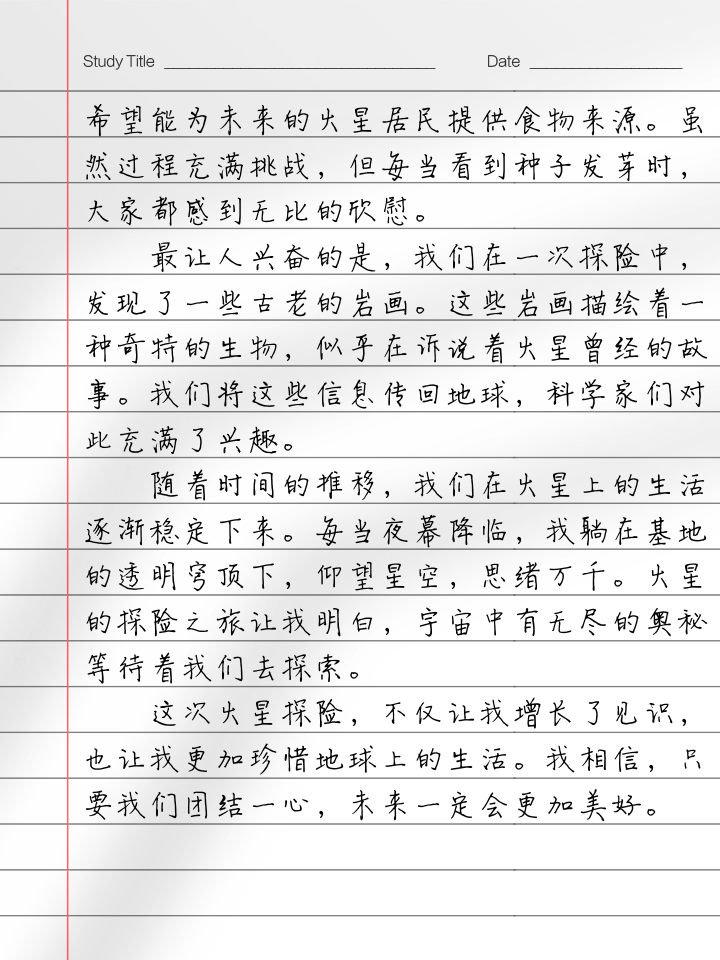 Study Title Date
希望能为未来的火星居民提供食物来源。虽
然过程充满挑战，但每当看到种子发芽时，
大家都感到无比的欣慰。
最让人兴奋的是，我们在一次探险中，
发现了一些古老的岩画。这些岩画描绘着一
种奇特的生物，似乎在诉说着火星曾经的故
事。我们将这些信息传回地球，科学家们对
此充满了兴趣。
随着时间的推移，我们在火星上的生活
逐渐稳定下来。每当夜幕降临，我躺在基地
的透明穹顶下，仰望星空，思绪万千。火星
的探险之旅让我明白，宇宙中有无尽的奥秘
等待着我们去探索。
这次火星探险，不仅让我增长了见识，
也让我更加珍惜地球上的生活。我相信，只
要我们团结一心，未来一定会更加美好。